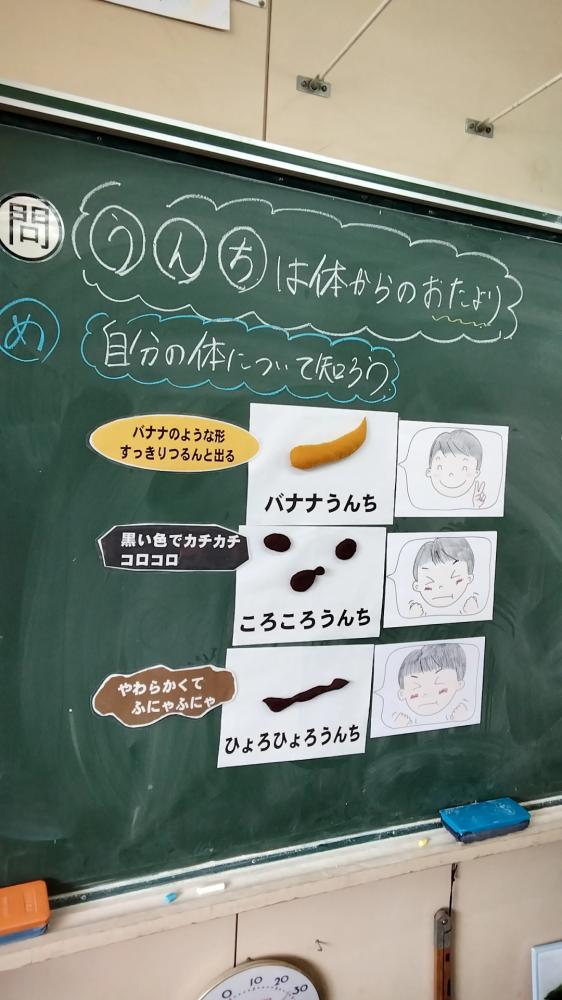 問
うんちは体からのおたより
め
自分の体について知ろう
バナナのような形
すっきりつるんと出る
バナナうんち
黒い色でカチカチ
コロコロ
ころころうんち
やわらかくて
ふにゃふにゃ
ひょろひょろうんち
0 10 20 30